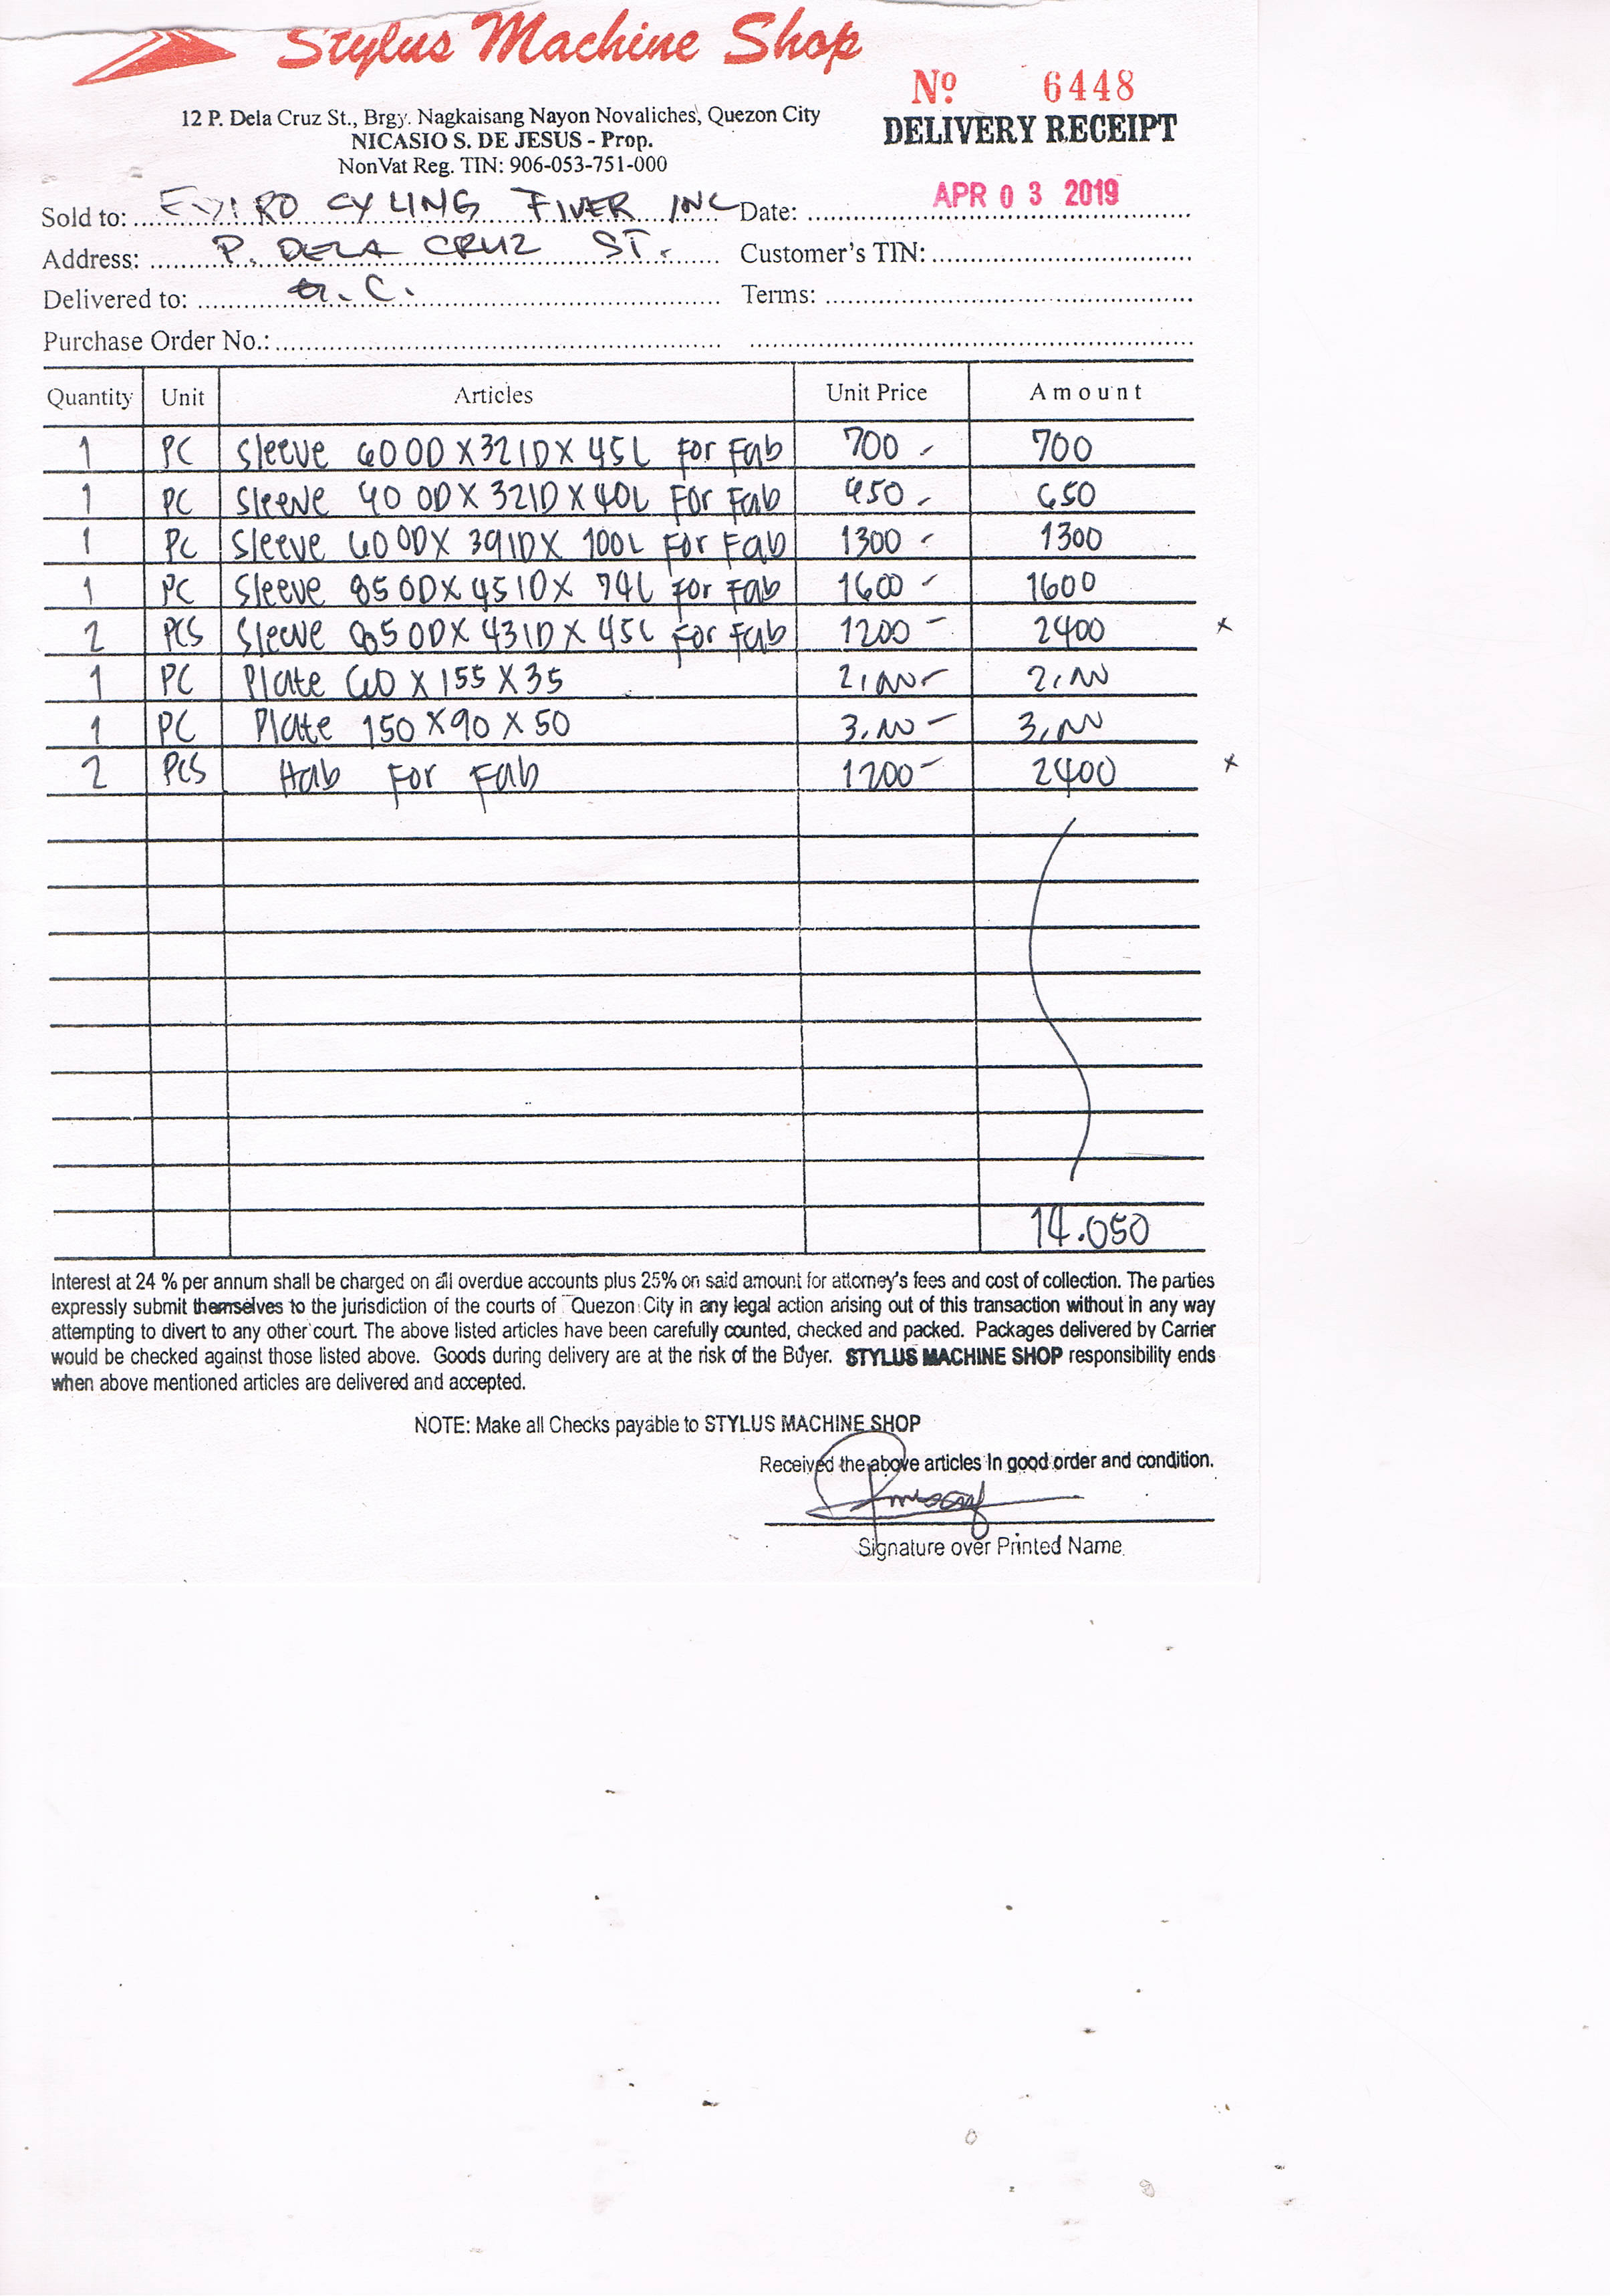 Stylus Machine Shop
Nº 6448
12 P. Dela Cruz St., Brgy. Nagkaisang Nayon Novaliches, Quezon City
DELIVERY RECEIPT
NICASIO S. DE JESUS - Prop.
NonVat Reg. TIN: 906-053-751-000
APR 03 2019
Sold to: ENVIRO CYLING FIVER INC Date:
Address: P. DELA CRUZ ST. Customer's TIN:
Delivered to: Q. C. Terms:
Purchase Order No.:
Quantity Unit Articles Unit Price Amount
1 PC Sleeve 60 OD X 32 ID X 45L For Fab 700 - 700
1 PC Sleeve 40 OD X 32 ID X 40L For Fab 650 - 650
1 PC Sleeve 60 OD X 39 ID X 100L For Fab 1300 - 1300
1 PC Sleeve 85 OD X 45 ID X 74L For Fab 1600 - 1600
2 PCS Sleeve 85 OD X 43 ID X 45L For Fab 1200 - 2400 x
1 PC Plate 60 X 155 X 35
1 PC Plate 150 X 90 X 50
2 PCS Hab For Fab 1200 - 2400 x
14.050
Interest at 24 % per annum shall be charged on all overdue accounts plus 25% on said amount for attorney's fees and cost of collection. The parties
expressly submit themselves to the jurisdiction of the courts of Quezon City in any legal action arising out of this transaction without in any way
attempting to divert to any other court. The above listed articles have been carefully counted, checked and packed. Packages delivered by Carrier
would be checked against those listed above. Goods during delivery are at the risk of the Buyer. STYLUS MACHINE SHOP responsibility ends
when above mentioned articles are delivered and accepted.
NOTE: Make all Checks payable to STYLUS MACHINE SHOP
Received the above articles In good order and condition.
Signature over Printed Name